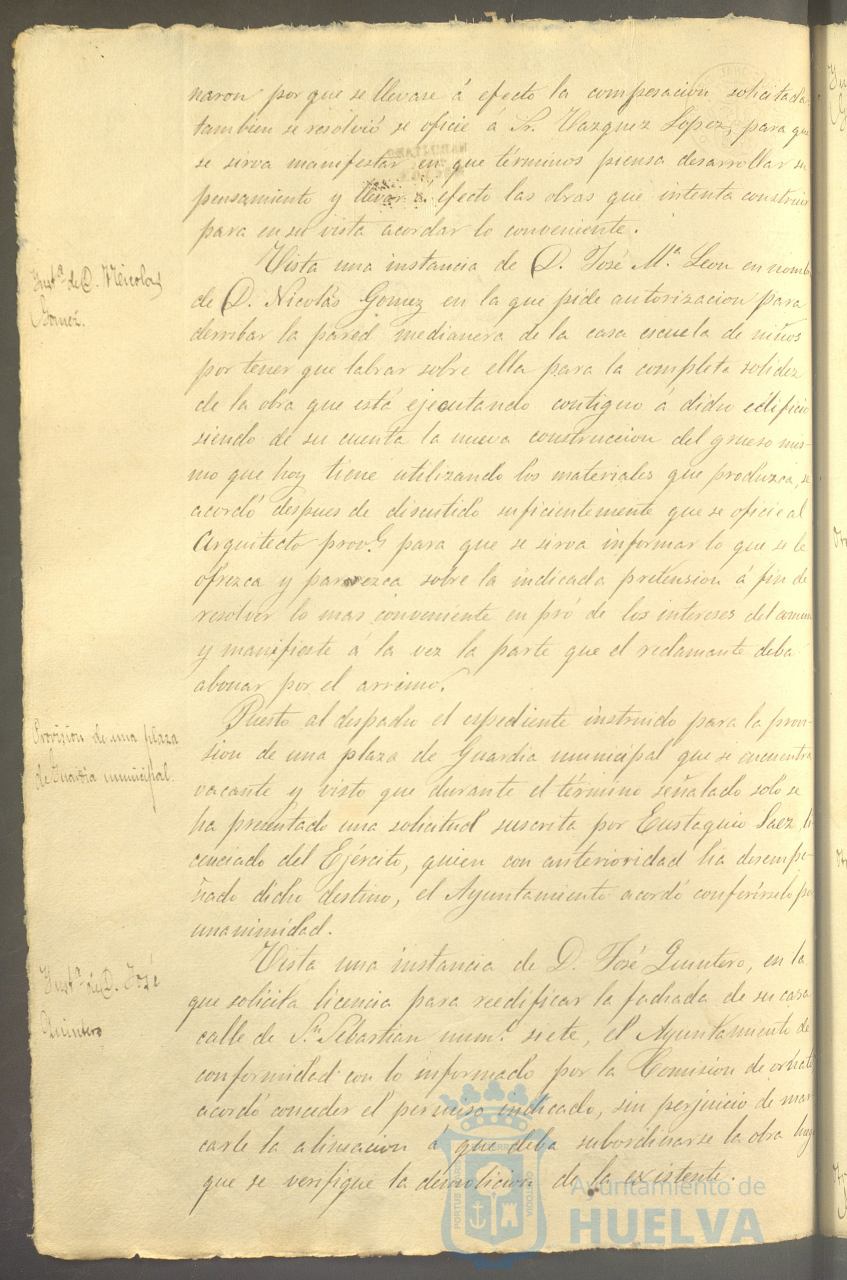 naron por que se llevase á efecto la comperacion solicitada
tambien se resolvió se oficie á Sr. Vazquez Lopez, para que
se sirva manifestar en que términos piensa desarrollar su
pensamiento y llevar á efecto las obras que intenta construir
para en su vista acordar lo conveniente.
Inst.ª de D. Nicolas
Gomez.
Vista una instancia de D. José M.ª Leon en nomb.
de D. Nicolás Gomez en la que pide autorizacion para
derribar la pared medianera de la casa escuela de niños
por tener que labrar sobre ella para la completa solidez
de la obra que está ejecutando contiguo á didho edificio
siendo de su cuenta la nueva construccion del grueso mis-
mo que hoy tiene utilizando los materiales que produzca, se
acordó despues de discutido suficientemente que se oficie al
Arquitecto prov.l para que se sirva informar lo que se le
ofrezca y parezca sobre la indicada pretension á fin de
resolver lo mas conveniente en pró de los intereses del comun
y manifieste á la vez la parte que el reclamante deba
abonar por el arrimo.
Provision de una plaza
de Guardia municipal.
Puesto al despacho el espediente instruido para la provi-
sion de una plaza de Guardia municipal que se encuentra
vacante y visto que durante el término señalado solo se
ha presentado una solicitud suscrita por Eustaquio Saez, li-
cenciado del Ejército, quien con anterioridad ha desempe-
ñado dicho destino, el Ayuntamiento acordó conferírselo por
unanimidad.
Inst.ª de D. José
Quintero
Vista una instancia de D. José Quintero, en la
que solicita licencia para reedificar la fachada de su casa
calle de S.n Sebastian num.º siete, el Ayuntamiento de
conformidad con lo informado por la Comision de ornato
acordó conceder el permiso indicado, sin perjuicio de mar-
carle la alineacion á que deba subordinarse la obra luego
que se verifique la demolicion de la existente.
Ayuntamiento de
HUELVA